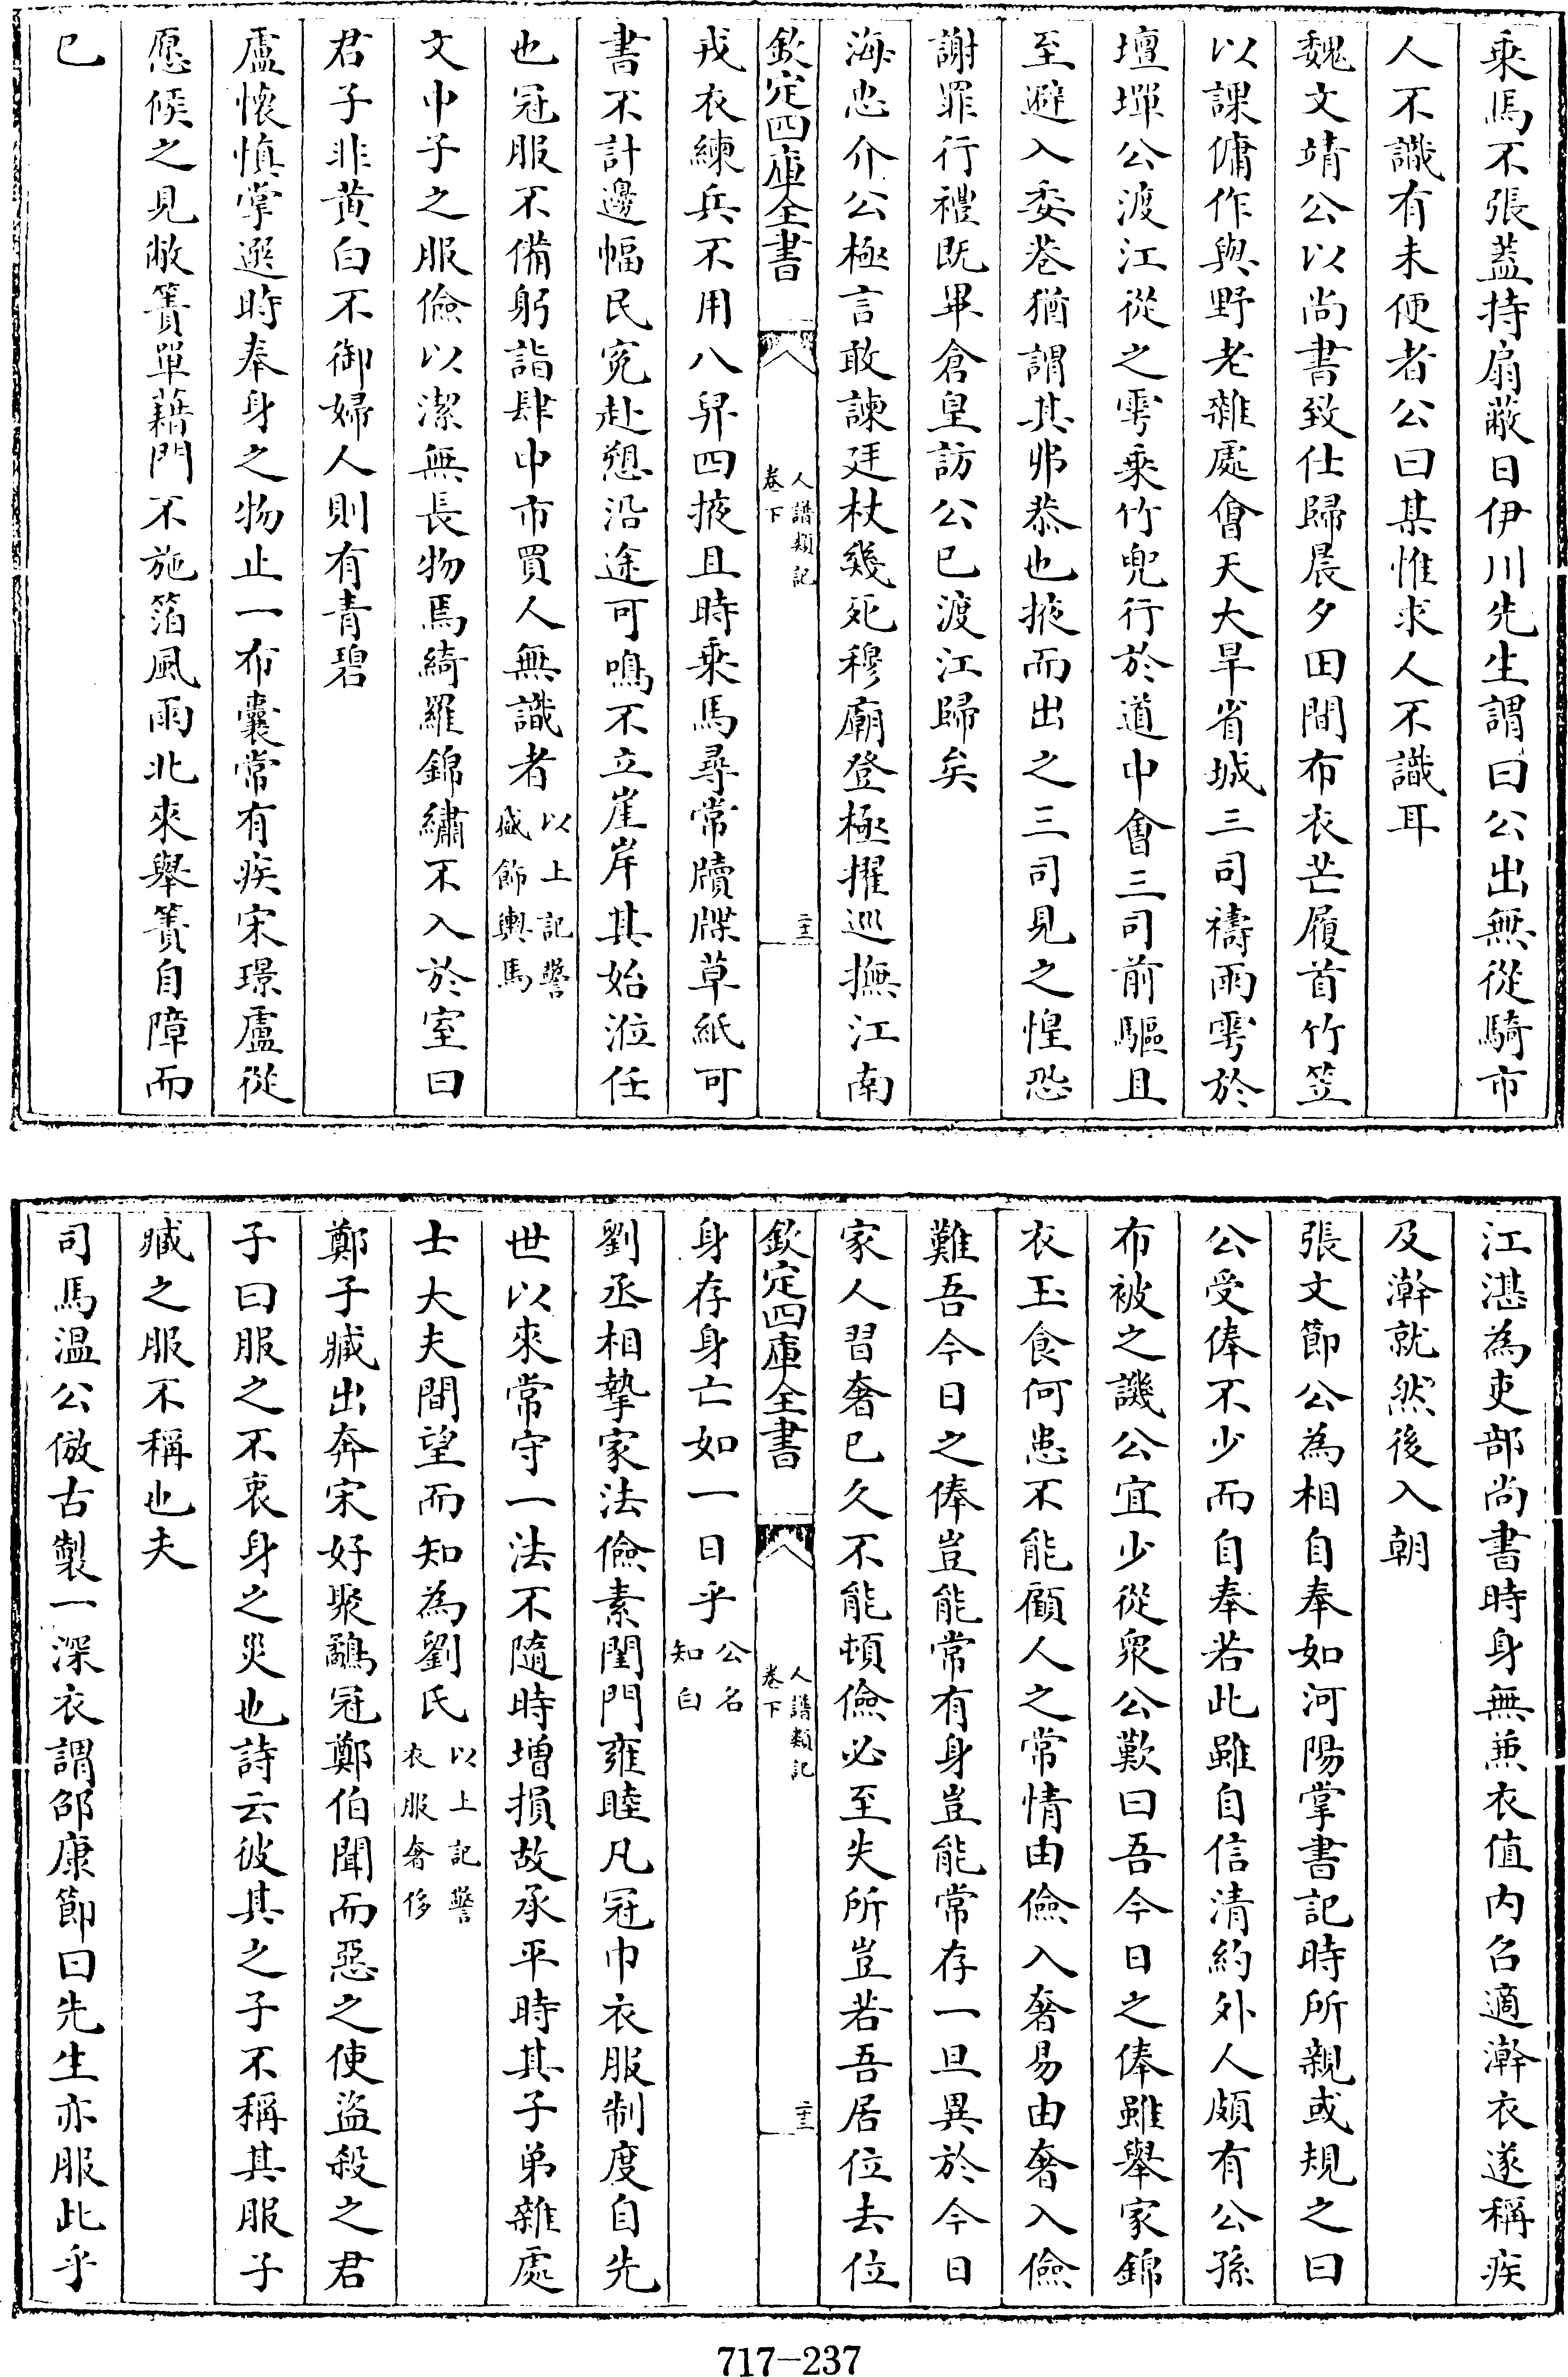 乘馬不張蓋持扇蔽日伊川先生謂曰公出無從騎市
人不識有未便者公曰某惟求人不識耳
魏文靖公以尚書致仕歸晨夕田間布衣芒履首竹笠
以課傭作與野老雜處會天大旱省城三司禱雨雩於
壇墠公渡江從之雩乘竹兜行於道中會三司前驅且
至避入委巷猶謂其弗恭也掖而出之三司見之惶恐
謝罪行禮既畢倉皇訪公已渡江歸矣
海忠介公極言敢諫廷杖幾死穆廟登極擢巡撫江南
欽定四庫全書 人譜類記卷下 二十三
戎衣練兵不用八舁四掖且時乘馬尋常牘牒草紙可
書不計邊幅民寃赴愬沿途可鳴不立崖岸其始涖任
也冠服不備躬詣肆中市買人無識者以上記警盛飾輿馬
文中子之服儉以潔無長物焉綺羅錦繡不入於室曰
君子非黃白不御婦人則有青碧
盧懷慎掌選時奉身之物止一布囊常有疾宋璟盧從
愿候之見敝簀單藉門不施箔風雨北來舉簀自障而
已
江湛為吏部尚書時身無兼衣值内召適澣衣遂稱疾
及澣就然後入朝
張文節公為相自奉如河陽掌書記時所親或規之曰
公受俸不少而自奉若此雖自信清約外人頗有公孫
布被之譏公宜少從衆公歎曰吾今日之俸雖舉家錦
衣玉食何患不能顧人之常情由儉入奢易由奢入儉
難吾今日之俸豈能常有身豈能常存一旦異於今日
家人習奢已久不能頓儉必至失所豈若吾居位去位
欽定四庫全書 人譜類記卷下 二十三
身存身亡如一日乎公名知白
劉丞相摯家法儉素閨門雍睦凡冠巾衣服制度自先
世以來常守一法不隨時增損故承平時其子弟雜處
士大夫間望而知為劉氏以上記警衣服奢侈
鄭子臧出奔宋好聚鷸冠鄭伯聞而惡之使盜殺之君
子曰服之不衷身之災也詩云彼其之子不稱其服子
臧之服不稱也夫
司馬溫公倣古製一深衣謂邵康節曰先生亦服此乎
717-237